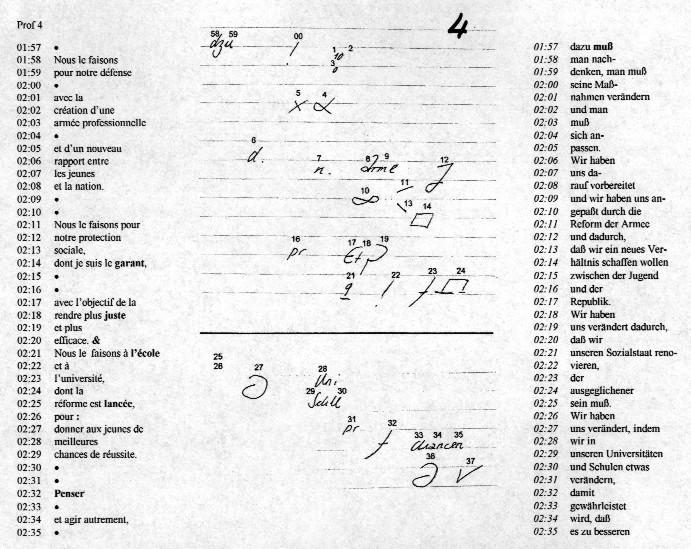 Prof 4
4
01:57 •
01:58 Nous le faisons
01:59 pour notre défense
02:00 •
02:01 avec la
02:02 création d'une
02:03 armée professionnelle
02:04 •
02:05 et d'un nouveau
02:06 rapport entre
02:07 les jeunes
02:08 et la nation.
02:09 •
02:10 •
02:11 Nous le faisons pour
02:12 notre protection
02:13 sociale,
02:14 dont je suis le garant,
02:15 •
02:16 •
02:17 avec l'objectif de la
02:18 rendre plus juste
02:19 et plus
02:20 efficace. &
02:21 Nous le faisons à l'école
02:22 et à
02:23 l'université,
02:24 dont la
02:25 réforme est lancée,
02:26 pour :
02:27 donner aux jeunes de
02:28 meilleures
02:29 chances de réussite.
02:30 •
02:31 •
02:32 Penser
02:33 •
02:34 et agir autrement,
02:35 •
58 59 00
dzu
1 2
3
5 4
6
d.
7 8 9 12
n.
10 11
13 14
16 17 18 19
pr Et
21 22 23 24
25
26 27 28
Uni
29 30
Schll
31 32
pr
33 34 35
chancen
36 37
01:57 dazu muß
01:58 man nach-
01:59 denken, man muß
02:00 seine Maß-
02:01 nahmen verändern
02:02 und man
02:03 muß
02:04 sich an-
02:05 passen.
02:06 Wir haben
02:07 uns da-
02:08 rauf vorbereitet
02:09 und wir haben uns an-
02:10 gepaßt durch die
02:11 Reform der Armee
02:12 und dadurch,
02:13 daß wir ein neues Ver-
02:14 hältnis schaffen wollen
02:15 zwischen der Jugend
02:16 und der
02:17 Republik.
02:18 Wir haben
02:19 uns verändert dadurch,
02:20 daß wir
02:21 unseren Sozialstaat reno-
02:22 vieren,
02:23 der
02:24 ausgeglichener
02:25 sein muß.
02:26 Wir haben
02:27 uns verändert, indem
02:28 wir in
02:29 unseren Universitäten
02:30 und Schulen etwas
02:31 verändern,
02:32 damit
02:33 gewährleistet
02:34 wird, daß
02:35 es zu besseren